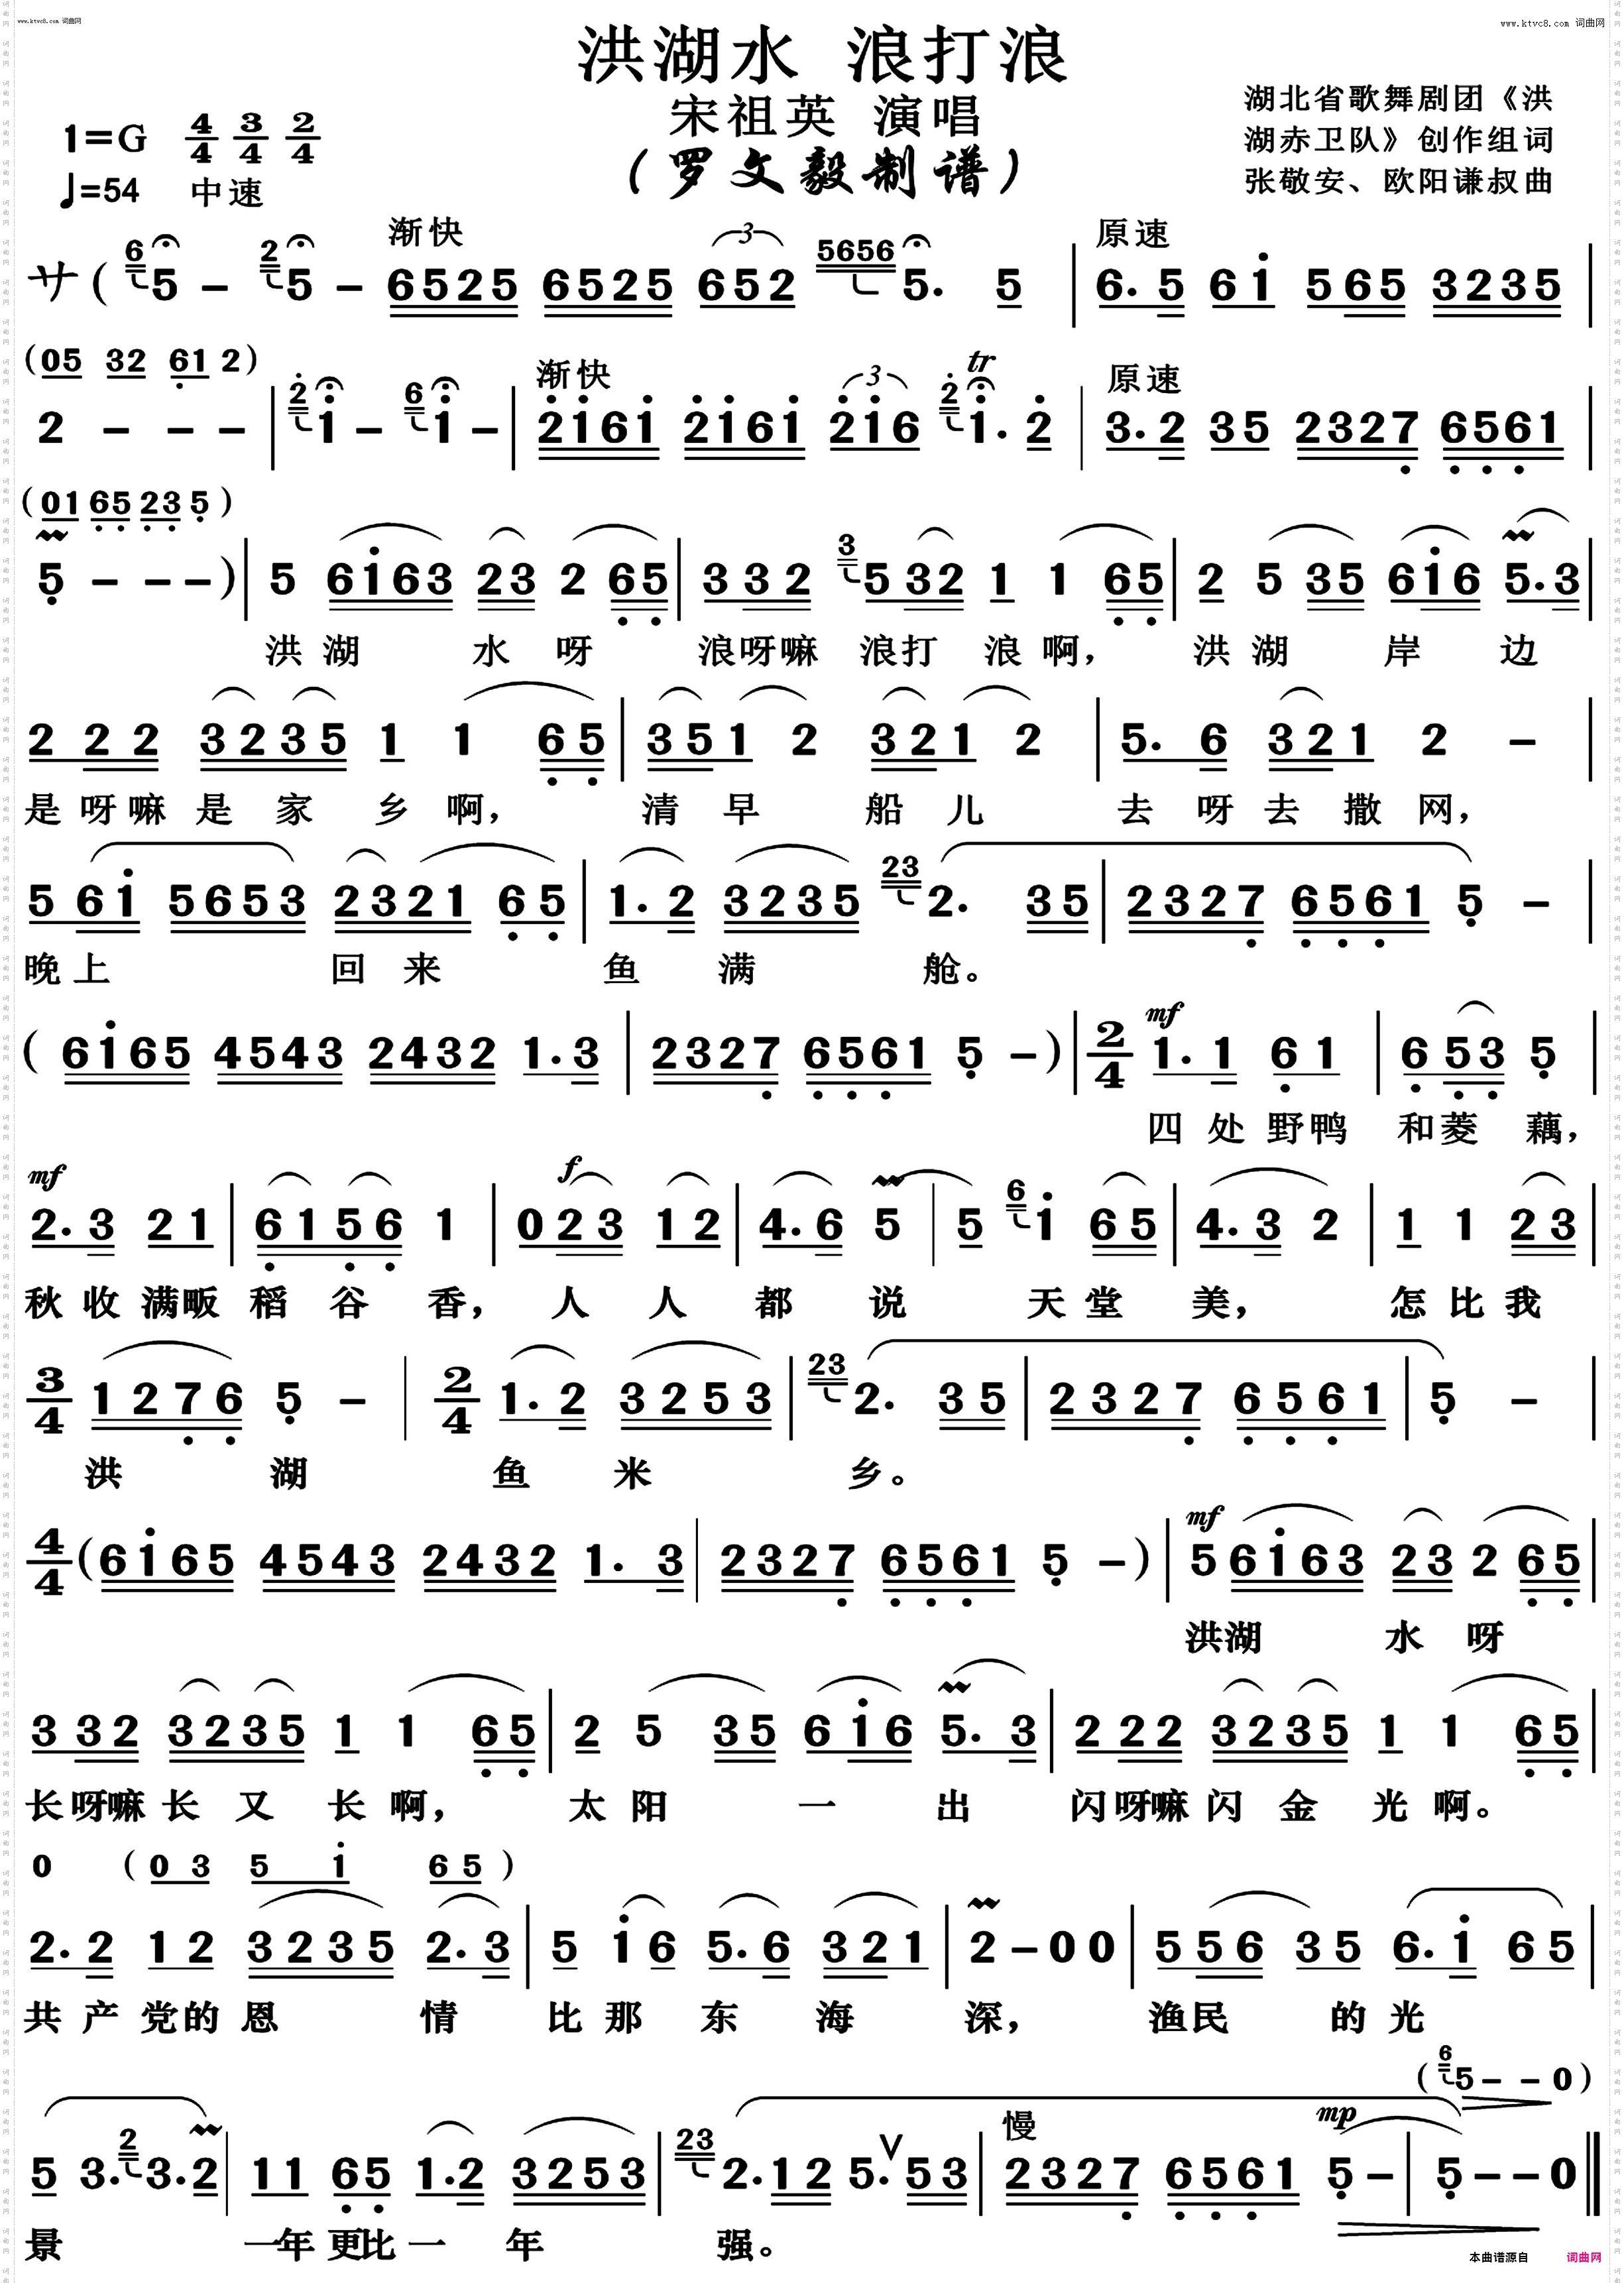 www.ktvc8.com 词曲网
www.ktvc8.com 词曲网
洪湖水 浪打浪
宋祖英 演唱
(罗文毅制谱)
湖北省歌舞剧团《洪
湖赤卫队》创作组词
张敬安、欧阳谦叔曲
1=G 4/4 3/4 2/4
♩=54 中速
渐快 原速
サ( 6 5 - 2 5 - 6525 6525 652 5656 5. 5 | 6. 5 6i 565 3235 |
(05 32 61 2)
渐快 tr 原速
2 - - - | 2 i - 6 i - | 2i6i 2i6i 2i6 2 i. 2 | 3.2 35 2327 6561 |
(01 65 23 5)
5 - - -) | 5 6i63 23 2 65 | 3 32 3 532 1 1 65 | 2 5 35 6i6 5.3
洪湖 水呀 浪呀嘛浪打浪啊, 洪湖岸边
2 22 3235 1 1 65 | 351 2 321 2 | 5. 6 321 2 - |
是呀嘛是家乡啊, 清早船儿 去呀去撒网,
5 6i 5653 2321 65 | 1.2 3235 23 2. 35 | 2327 6561 5 - |
晚上 回来 鱼满 舱。
( 6i65 4543 2432 1.3 | 2327 6561 5 -) | 2/4 mf 1. 1 61 | 6 53 5 |
四处野鸭 和菱藕,
mf f
2.3 21 | 6156 1 | 023 12 | 4.6 5 | 5 6 i 65 | 4.3 2 | 1 1 23 |
秋收满畈稻谷香, 人人都说 天堂美, 怎比我
3/4 1276 5 - | 2/4 1.2 3253 | 23 2. 35 | 2327 6561 | 5 - |
洪湖 鱼米 乡。
4/4 (6i65 4543 2432 1. 3 | 2327 6561 5 -) | mf 5 6i63 23 2 65 |
洪湖 水呀
3 32 3235 1 1 65 | 2 5 35 6i6 5.3 | 2 22 3235 1 1 65 |
长呀嘛长又长啊, 太阳一出 闪呀嘛闪金光啊。
0 (03 5 i 65)
2.2 12 3235 2.3 | 5 i6 5.6 321 | 2 - 0 0 | 556 35 6.i 65 |
共产党的恩情 比那东海深, 渔民的光
(6 5 - - 0)
慢 mp
5 3. 2 3.2 | 11 65 1.2 3253 | 23 2.12 5. V 53 | 2327 6561 5 - | 5 - - 0 ‖
景 一年更比一年 强。
本曲谱源自 词曲网